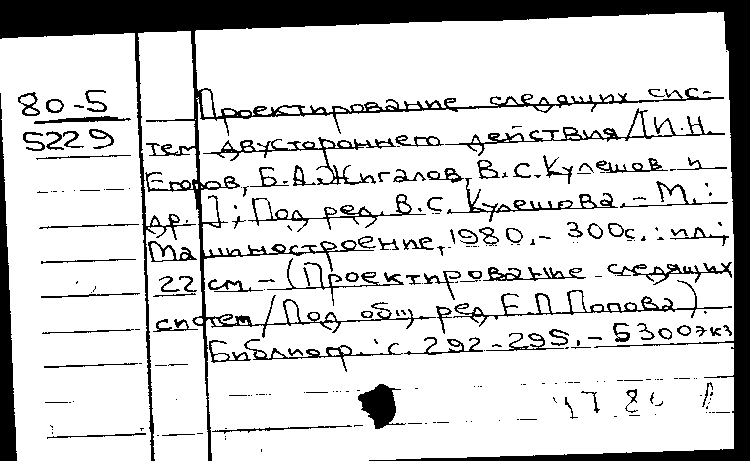 80-5
5229
Проектирование следящих сис-
тем двустороннего действия / [И.Н.
Егоров, Б.А. Жигалов, В.С. Кулешов и
др.]; Под ред. В.С. Кулешова. - М.:
Машиностроение, 1980. - 300с.: ил.;
22 см. - (Проектирование следящих
систем / Под общ. ред. Е.П. Попова).
Библиогр.: с. 292-295. - 5300экз